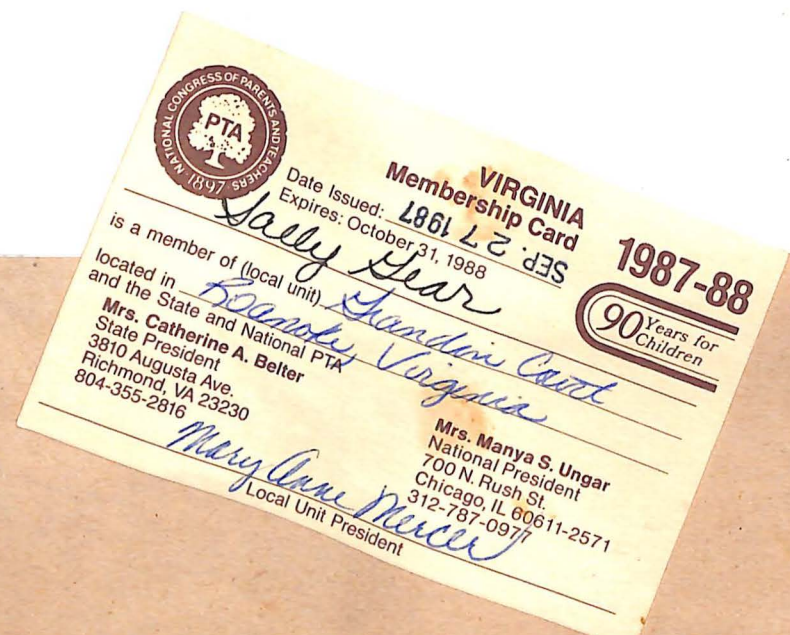 NATIONAL CONGRESS OF PARENTS AND TEACHERS
PTA
1897
VIRGINIA
Membership Card
1987-88
Date Issued: SEP. 27 1987
Expires: October 31, 1988
90 Years for
Children
Sally Gear
is a member of (local unit) Grandin Court
located in Roanoke, Virginia
and the State and National PTA
Mrs. Catherine A. Belter
State President
3810 Augusta Ave.
Richmond, VA 23230
804-355-2816
Mrs. Manya S. Ungar
National President
700 N. Rush St.
Chicago, IL 60611-2571
312-787-0977
Mary Anne Mercer
Local Unit President